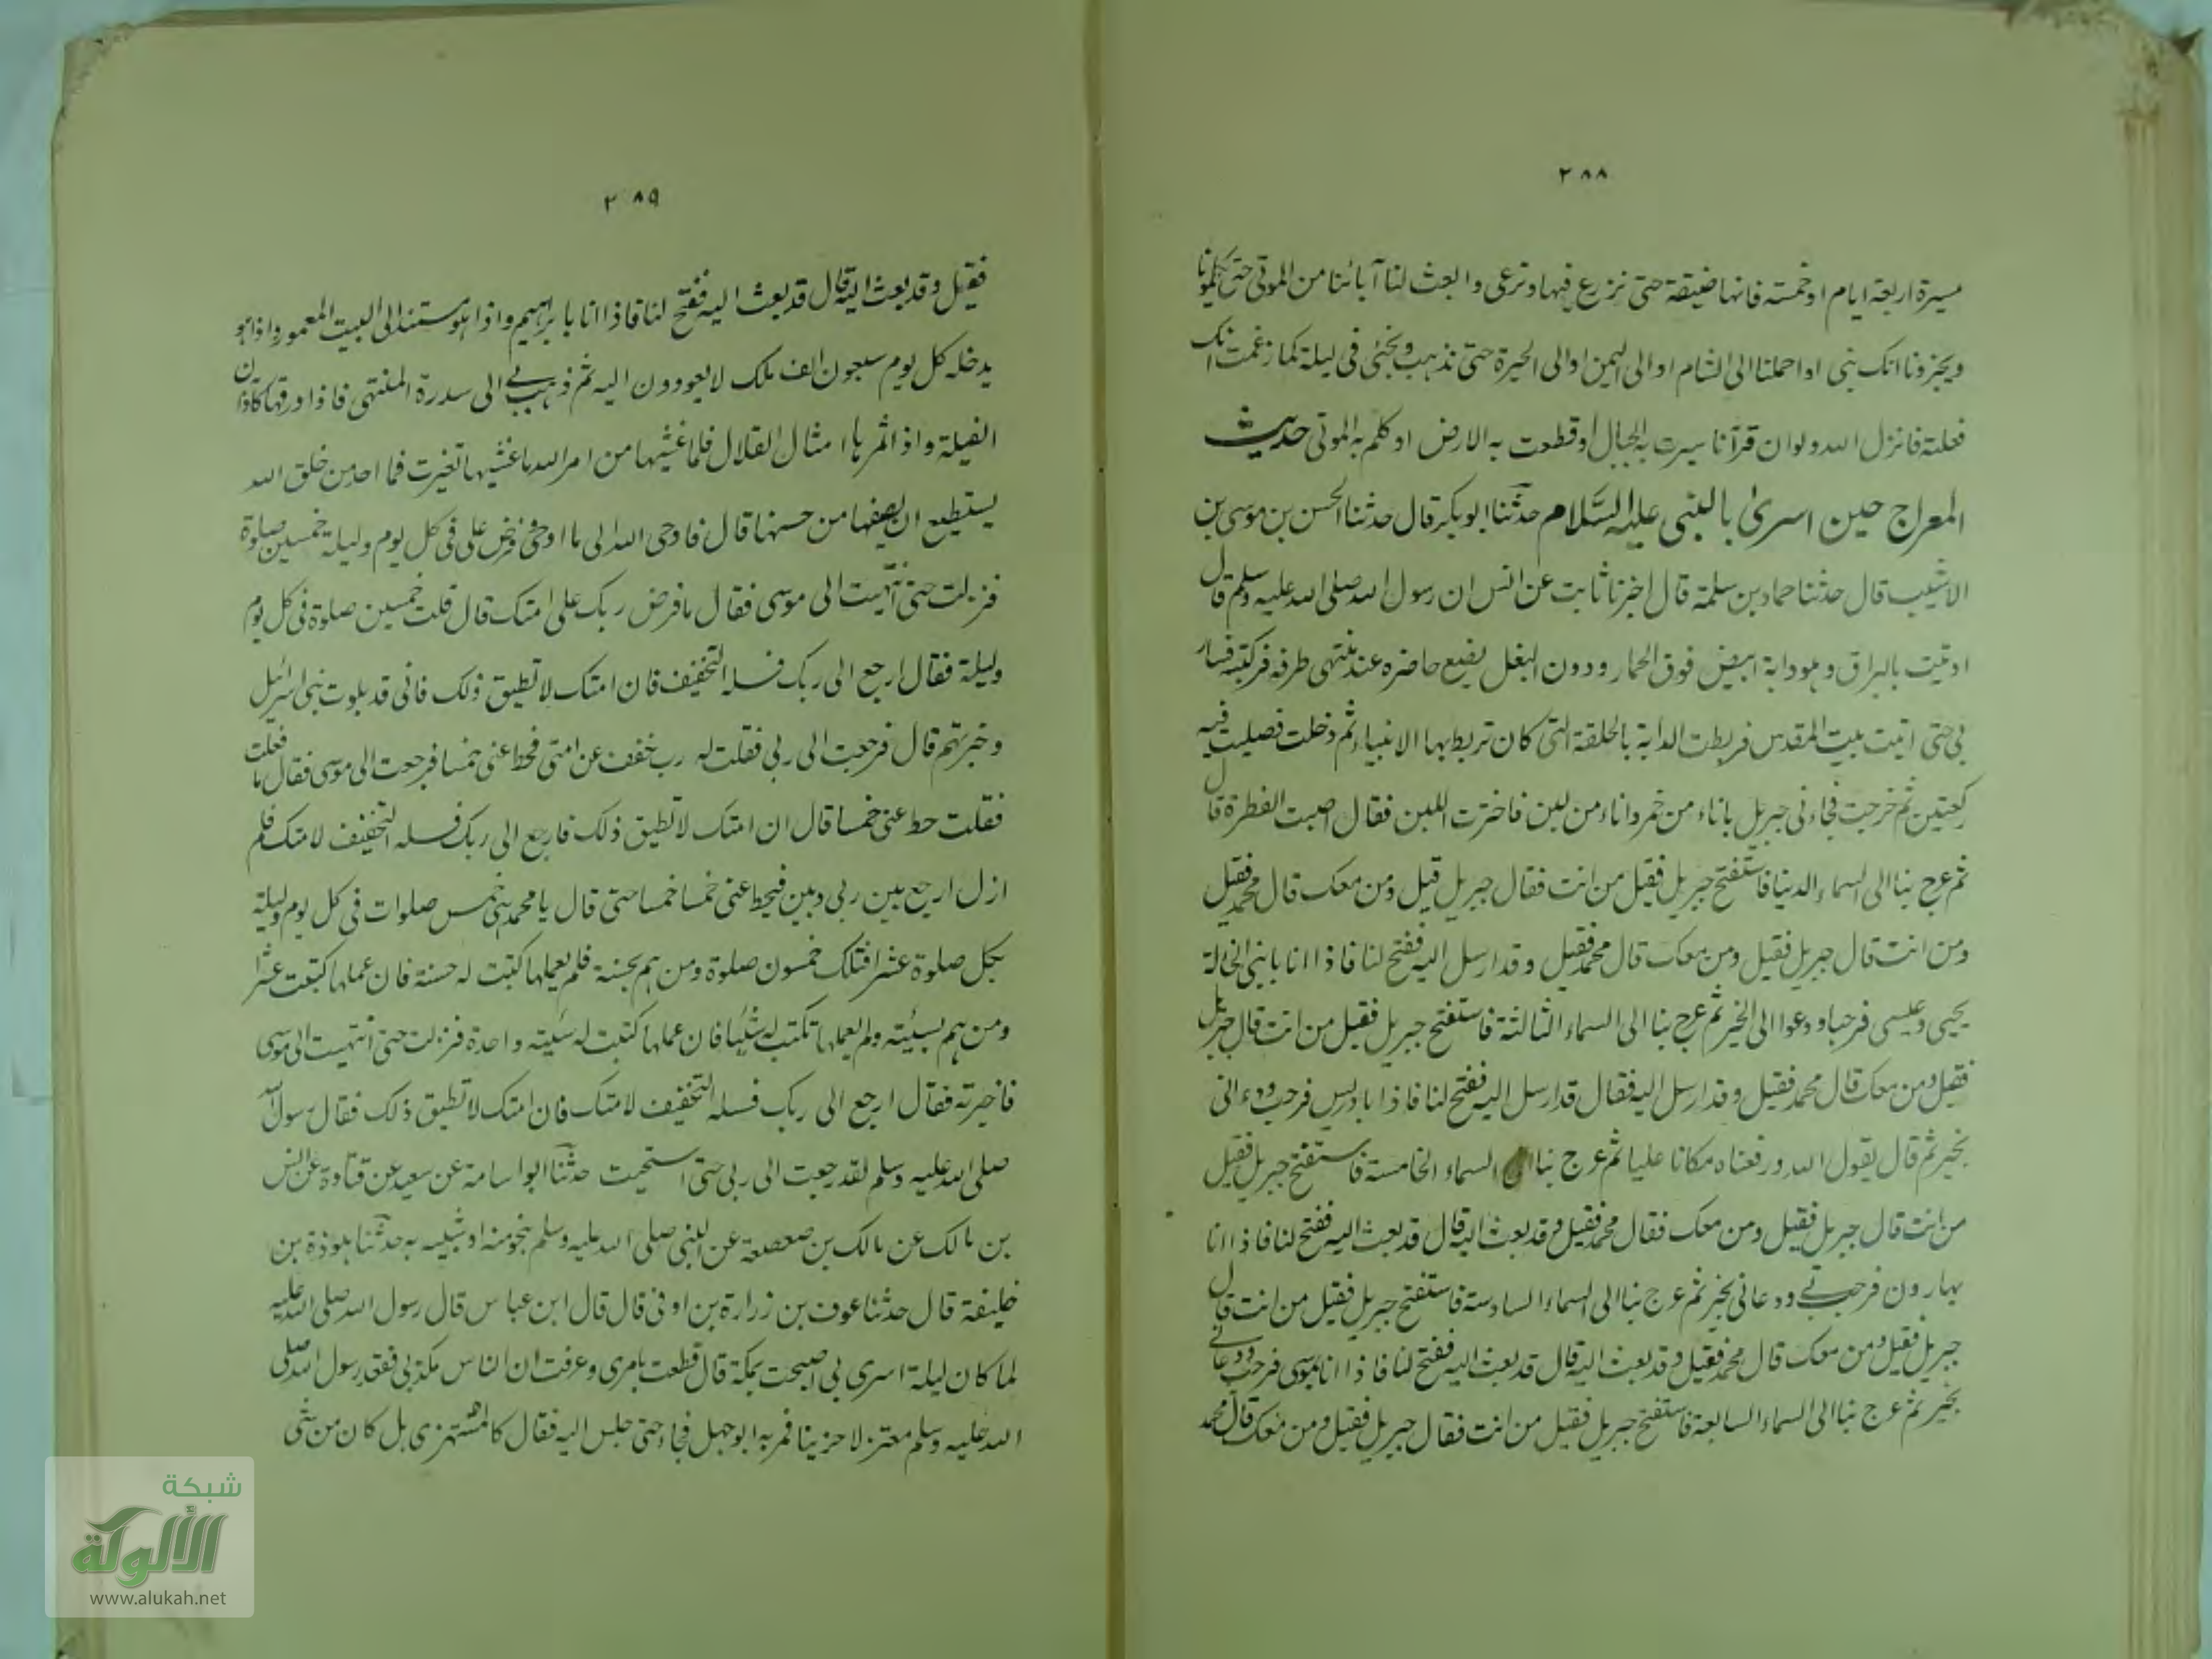 ٢٨٨
مسيرة اربعة ايام او خمسة فانها ضيقة حتى نزرع فيها ونرعى وابعث لنا آبائنا من الموتى حتى يكلمونا
ويخبرونا انك نبى او احملنا الى الشام او الى اليمن او الى الحيرة حتى نذهب ونجئى فى ليلة كما زعمت انك
فعلته فانزل الله ولو ان قرآنا سيرت به الجبال او قطعت به الارض او كلم به الموتى حديث
المعراج حين اسرى بالنبى عليه السلام حدثنا ابو بكر قال حدثنا الحسن بن موسى بن
الاشيب قال حدثنا حماد بن سلمة قال اخبرنا ثابت عن انس ان رسول الله صلى الله عليه وسلم قال
اوتيت بالبراق وهو دابة ابيض فوق الحمار ودون البغل يضع حافره عند منتهى طرفه فركبته فسار
بى حتى اتيت بيت المقدس فربطت الدابة بالحلقة التى كان تربط بها الانبياء ثم دخلت فصليت فيه
ركعتين ثم خرجت فجاءنى جبريل باناء من خمر واناء من لبن فاخترت اللبن فقال اصبت الفطرة قال
ثم عرج بنا الى السماء الدنيا فاستفتح جبريل فقيل من انت فقال جبريل قيل ومن معك قال محمد فقيل
ومن انت قال جبريل فقيل ومن معك قال محمد فقيل وقد ارسل اليه ففتح لنا فاذا انا بابنى الخالة
يحيى وعيسى فرحبا ودعوا الى الخير ثم عرج بنا الى السماء الثالثة فاستفتح جبريل فقيل من انت قال جبريل
فقيل ومن معك قال محمد فقيل وقد ارسل اليه فقال قد ارسل اليه ففتح لنا فاذا بادريس فرحب ودعانى
بخير ثم قال يقول الله ورفعناه مكانا عليا ثم عرج بنا الى السماء الخامسة فاستفتح جبريل فقيل
من انت قال جبريل فقيل ومن معك فقال محمد فقيل وقد بعث اليه قال قد بعث اليه ففتح لنا فاذا انا
بهارون فرحب بى ودعانى بخير ثم عرج بنا الى السماء السادسة فاستفتح جبريل فقيل من انت قال
جبريل فقيل ومن معك قال محمد فقيل وقد بعث اليه قال قد بعث اليه ففتح لنا فاذا انا بموسى فرحب ودعانى
بخير ثم عرج بنا الى السماء السابعة فاستفتح جبريل فقيل من انت فقال جبريل فقيل ومن معك قال محمد
٢٨٩
فقيل وقد بعث اليه قال قد بعث اليه ففتح لنا فاذا انا بابراهيم واذا هو مستند الى البيت المعمور واذا هو
يدخله كل يوم سبعون الف ملك لا يعودون اليه ثم ذهب بى الى سدرة المنتهى فاذا ورقها كآذان
الفيلة واذا ثمرها امثال القلال فلما غشيها من امر الله ما غشيها تغيرت فما احد من خلق الله
يستطيع ان يصفها من حسنها قال فاوحى الله الى ما اوحى وفرض على فى كل يوم وليلة خمسين صلوة
فنزلت حتى انتهيت الى موسى فقال ما فرض ربك على امتك قال قلت خمسين صلوة فى كل يوم
وليلة فقال ارجع الى ربك فسله التخفيف فان امتك لا تطيق ذلك فانى قد بلوت بنى اسرائيل
وخبرتهم قال فرجعت الى ربى فقلت له رب خفف عن امتى فحط عنى خمسا فرجعت الى موسى فقال ما فعلت
فقلت حط عنى خمسا قال ان امتك لا تطيق ذلك فارجع الى ربك فسله التخفيف لامتك فلم
ازل ارجع بين ربى وبين فيحط عنى خمسا خمسا حتى قال يا محمد هى خمس صلوات فى كل يوم وليلة
بكل صلوة عشر افتلك خمسون صلوة ومن هم بحسنة فلم يعملها كتبت له حسنة فان عملها كتبت عشرا
ومن هم بسيئة ولم يعملها تكتب له شيئا فان عملها كتبت له سيئة واحدة فنزلت حتى انتهيت الى موسى
فاخبرته فقال ارجع الى ربك فسله التخفيف لامتك فان امتك لا تطيق ذلك فقال رسول الله
صلى الله عليه وسلم لقد رجعت الى ربى حتى استحيت حدثنا ابو اسامة عن سعيد عن قتادة عن انس
بن مالك عن مالك بن صعصعة عن النبى صلى الله عليه وسلم بنحو منه او شبيه به حدثنا هوذة بن
خليفة قال حدثنا عوف بن زرارة بن اوفى قال قال ابن عباس قال رسول الله صلى الله عليه
لما كان ليلة اسرى بى اصبحت بمكة قال قطعت بامرى وعرفت ان الناس مكذبى فقعد رسول الله صلى
الله عليه وسلم معتزلا حزينا فمر به ابو جهل فجاء حتى جلس اليه فقال كالمستهزى هل كان من شئى
شبكة
الألوكة
www.alukah.net